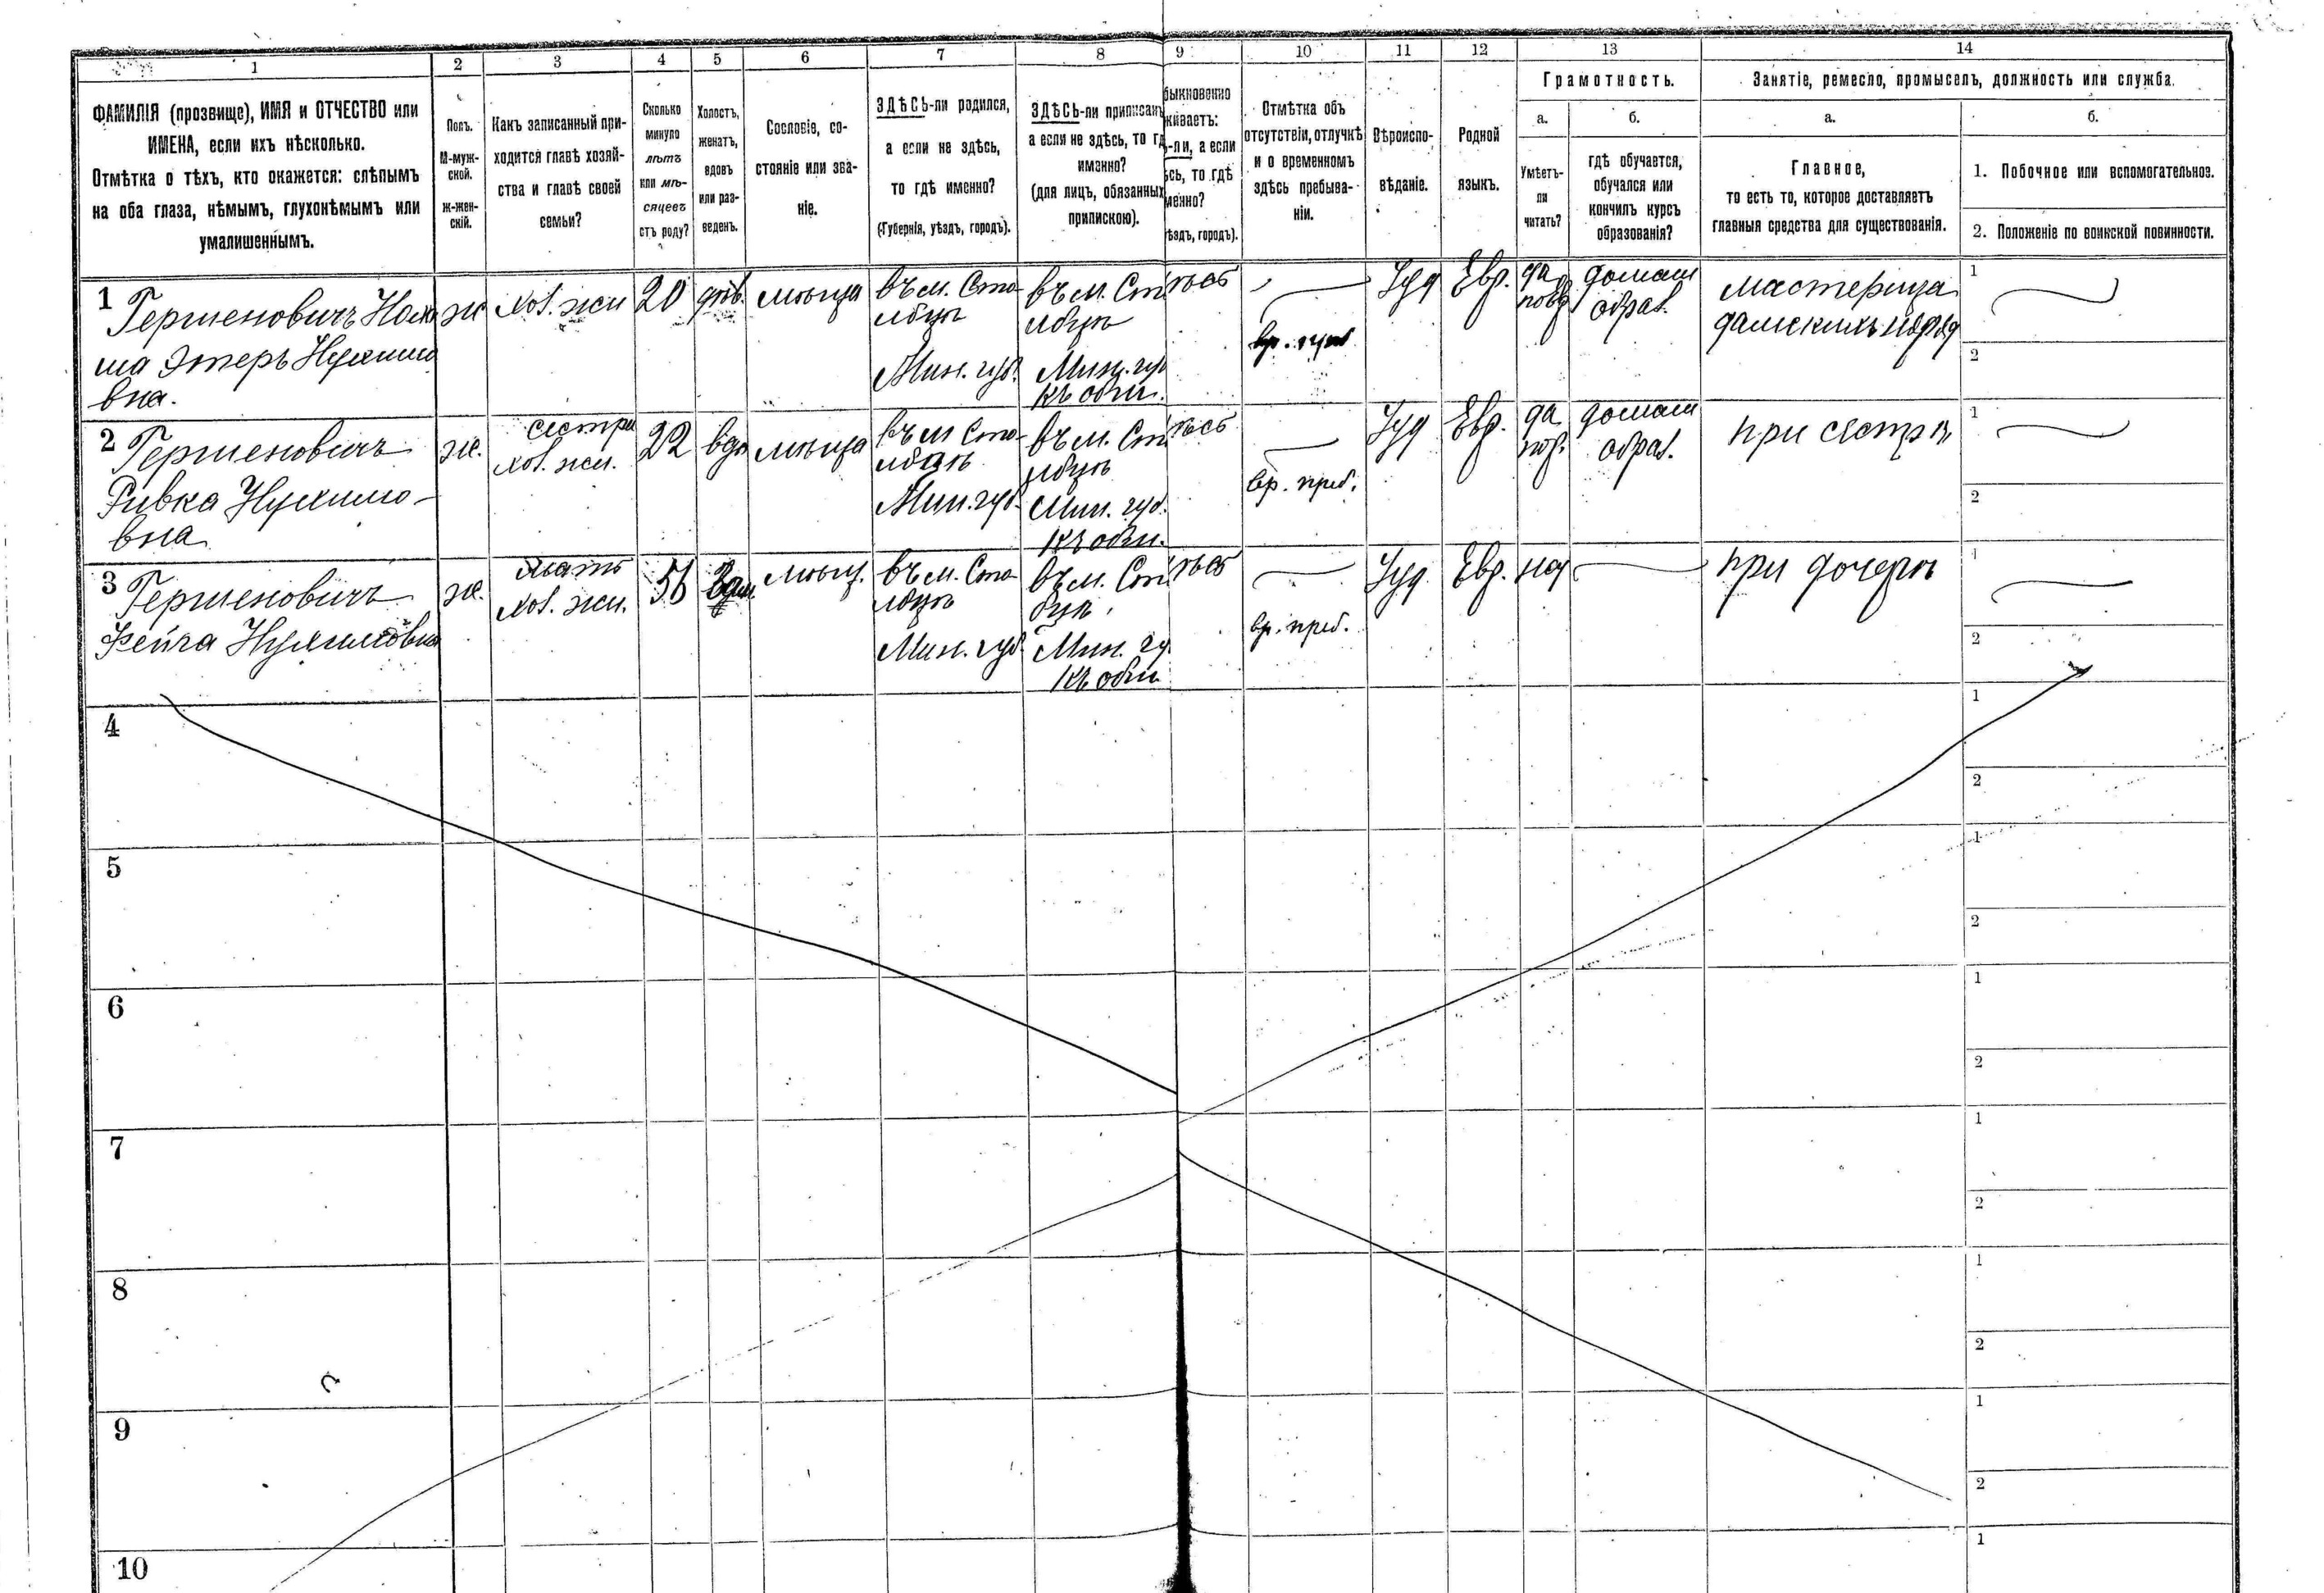 1 2 3 4 5 6 7 8 9 10 11 12 13 14
ФАМИЛІЯ (прозвище), ИМЯ и ОТЧЕСТВО или
ИМЕНА, если ихъ нѣсколько.
Отмѣтка о тѣхъ, кто окажется: слѣпымъ
на оба глаза, нѣмымъ, глухонѣмымъ или
умалишеннымъ.
Полъ.
М-муж-
ской.
ж-жен-
скій.
Какъ записанный при-
ходится главѣ хозяй-
ства и главѣ своей
семьи?
Сколько
минуло
лѣтъ
или мѣ-
сяцевъ
отъ роду?
Холостъ,
женатъ,
вдовъ
или раз-
веденъ.
Сословіе, со-
стояніе или зва-
ніе.
ЗДѢСЬ-ли родился,
а если не здѣсь,
то гдѣ именно?
(Губернія, уѣздъ, городъ).
ЗДѢСЬ-ли приписанъ
а если не здѣсь, то гд
именно?
(для лицъ, обязанныхъ
припискою).
быкновенно
живаетъ:
ь-ли, а если
ѣсь, то гдѣ
менно?
ѣздъ, городъ).
Отмѣтка объ
отсутствіи, отлучкѣ
и о временномъ
здѣсь пребыва-
ніи.
Вѣроиспо-
вѣданіе.
Родной
языкъ.
Грамотность.
а.
Умѣетъ-
ли
читать?
б.
гдѣ обучается,
обучался или
кончилъ курсъ
образованія?
Занятіе, ремесло, промыселъ, должность или служба.
а.
Главное,
то есть то, которое доставляетъ
главныя средства для существованія.
б.
1. Побочное или вспомогательное.
2. Положеніе по воинской повинности.
1 Гершеновичъ
ша Этеръ Нухимо
вна.
ж
хоз. жи
20
дѣв.
мѣща
въ м. Сто
лбцѣ
Мин. губ.
въ м. Ст
лбцѣ
Мин. гу
къ общ.
Іуд
Евр.
да
домаш
образ.
мастерица
дамскихъ
1
2
2 Гершеновичъ
Ривка Нухимо-
вна
ж.
сестра
хоз. жи.
22
вдо
мѣща
въ м Сто-
лбцѣ
Мин. губ.
въ м. Ст
лбцѣ
Мин. губ.
къ общ.
вр. преб.
Іуд
Евр.
да
домаш
образ.
при сестрѣ
1
2
3 Гершеновичъ
Фейга Нухимовна
ж.
мать
хоз. жи.
56
мѣщ.
въ м. Сто
лбцѣ
Мин. губ
въ м. Ст
бцѣ
Мин. гу
къ общ
вр. преб.
Іуд
Евр.
при дочери
1
2
4
1
2
5
1
2
6
1
2
7
1
2
8
1
2
9
1
2
10
1